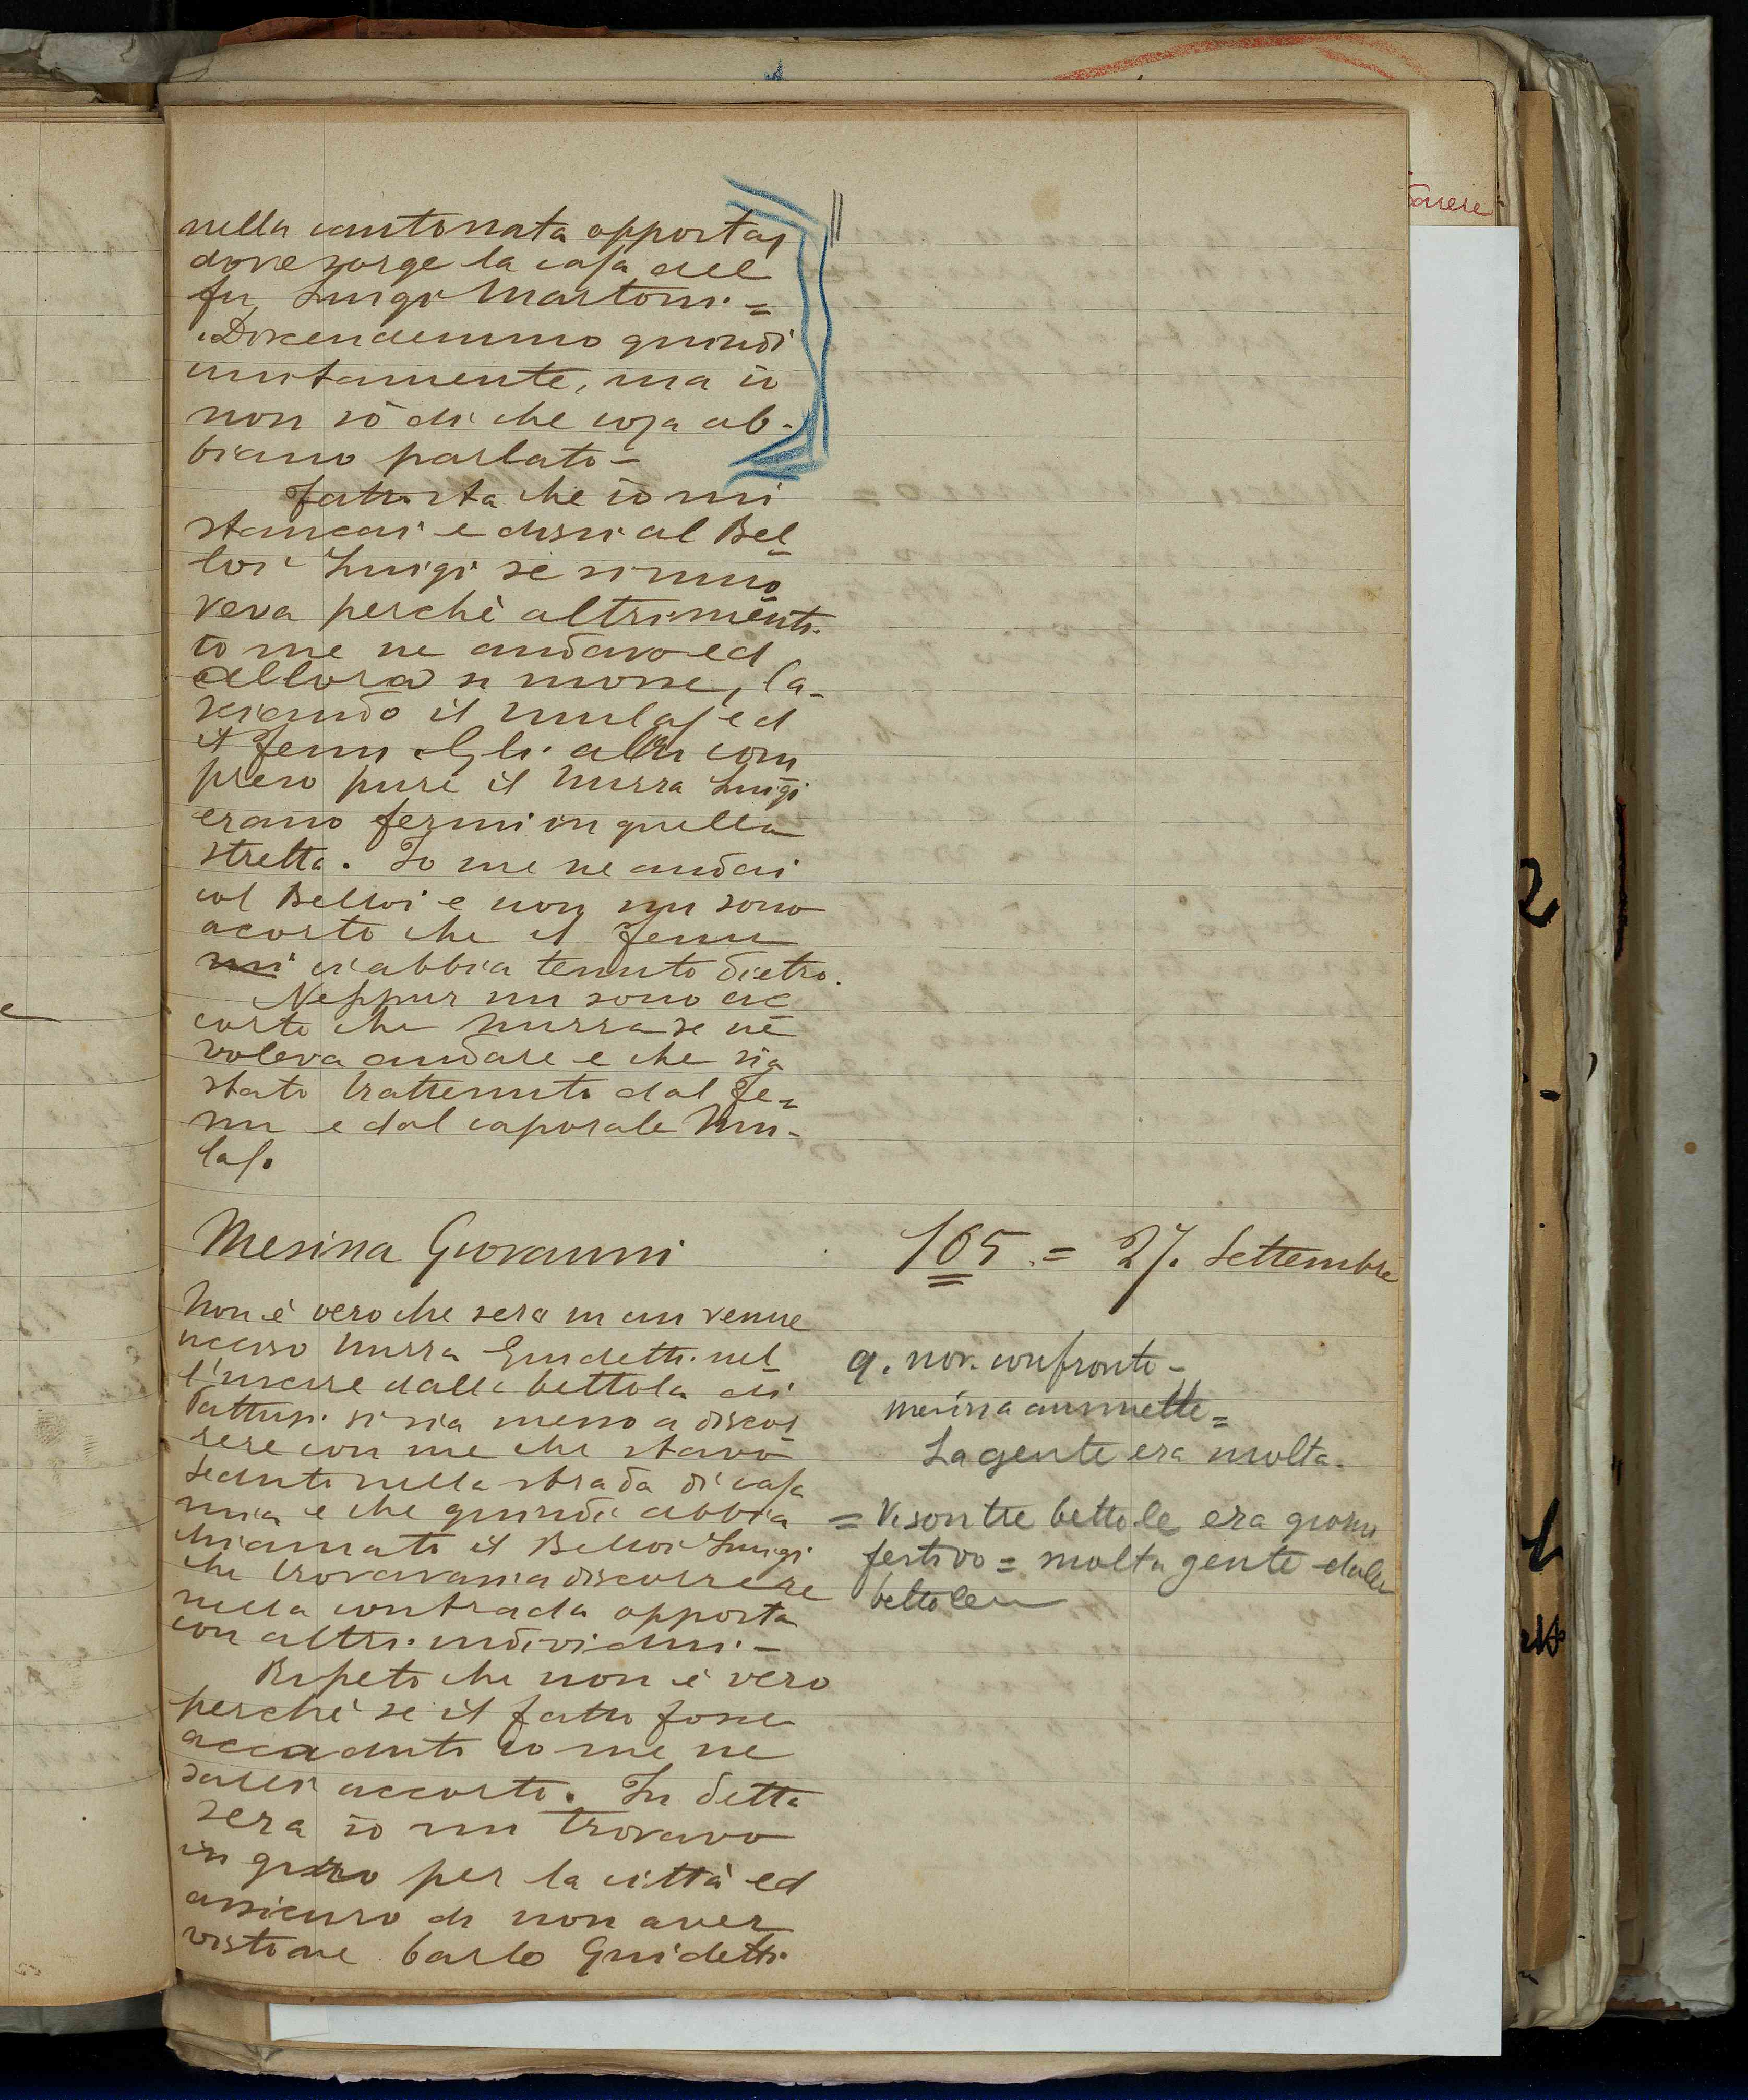 nella cantonata opposta,
dove sorge la casa del
fu Luigi Martoni. =
Discendemmo quindi
unitamente, ma io
non sò di che cosa ab-
biano parlato -
Fatto sta che io mi
stancai e dissi al Bel-
loi Luigi se si muo
veva perchè altrimenti
io me ne andavo ed
allora si mosse, la-
sciando il Mulas ed
il Fenu. Gli altri com
preso pure il Murra Luigi
erano fermi in quella
stretta. Io me ne andai
col Belloi e non mi sono
acorto che il Fenu
mi ci abbia tenuto dietro.
Neppur mi sono ac
corto che Murra se ne
voleva andare e che sia
stato trattenuto dal Fe=
nu e dal caporale Mu-
las.
Mesina Giovanni
105 = 27. Settembre
Non è vero che sera in cui venne
ucciso Murra Guidetti nel
l'uscire dalla bettola di
Pattusi si sia messo a discor
rere con me che stavo
seduto nella strada di casa
mia e che quindi abbia
chiamato il Belloi Luigi
che trovavasi a discorrere
nella contrada opposta
con altri individui. -
Ripeto che non è vero
perchè se il fatto fosse
accaduto io me ne
sarei accorto. In detta
sera io mi trovavo
in giro per la città ed
assicuro di non aver
visto Carlo Guidetti.
9. nov. confronto -
Mesina ammette =
La gente era molta.
= Vi son tre bettole era giorno
festivo = molta gente dalle
bettole